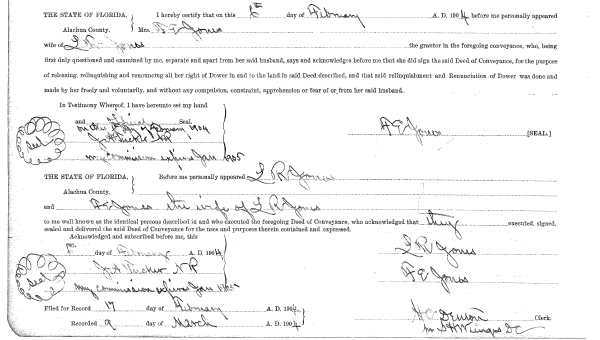 THE STATE OF FLORIDA. I hereby certify that on this 6th day of February A. D. 1904 before me personally appeared
Alachua County. Mrs. F E Jones
wife of L R Jones the grantor in the foregoing conveyance, who, being
first duly questioned and examined by me, separate and apart from her said husband, says and acknowledges before me that she did sign the said Deed of Conveyance, for the purpose
of releasing, relinquishing and renouncing all her right of Dower in and to the land in said Deed described, and that said relinquishment and Renunciation of Dower was done and
made by her freely and voluntarily, and without any compulsion, constraint, apprehension or fear of or from her said husband.
In Testimony Whereof, I have hereunto set my hand
and official Seal
on the day of February 1904
seal J A Tucker NP F E Jones [SEAL.]
my commission expires Jan 1905
THE STATE OF FLORIDA. Before me personally appeared L R Jones
Alachua County.
and F E Jones the wife of L R Jones
to me well known as the identical persons described in and who executed the foregoing Deed of Conveyance, who acknowledged that they executed, signed,
sealed and delivered the said Deed of Conveyance for the uses and purposes therein contained and expressed.
Acknowledged and subscribed before me, this
day of February A. D. 1904 L R Jones
seal J A Tucker NP F E Jones
my commission expires Jan 1905
Filed for Record 17 day of February A. D. 1904 H C Denton Clerk
Recorded 9 day of March A. D. 1904 DC